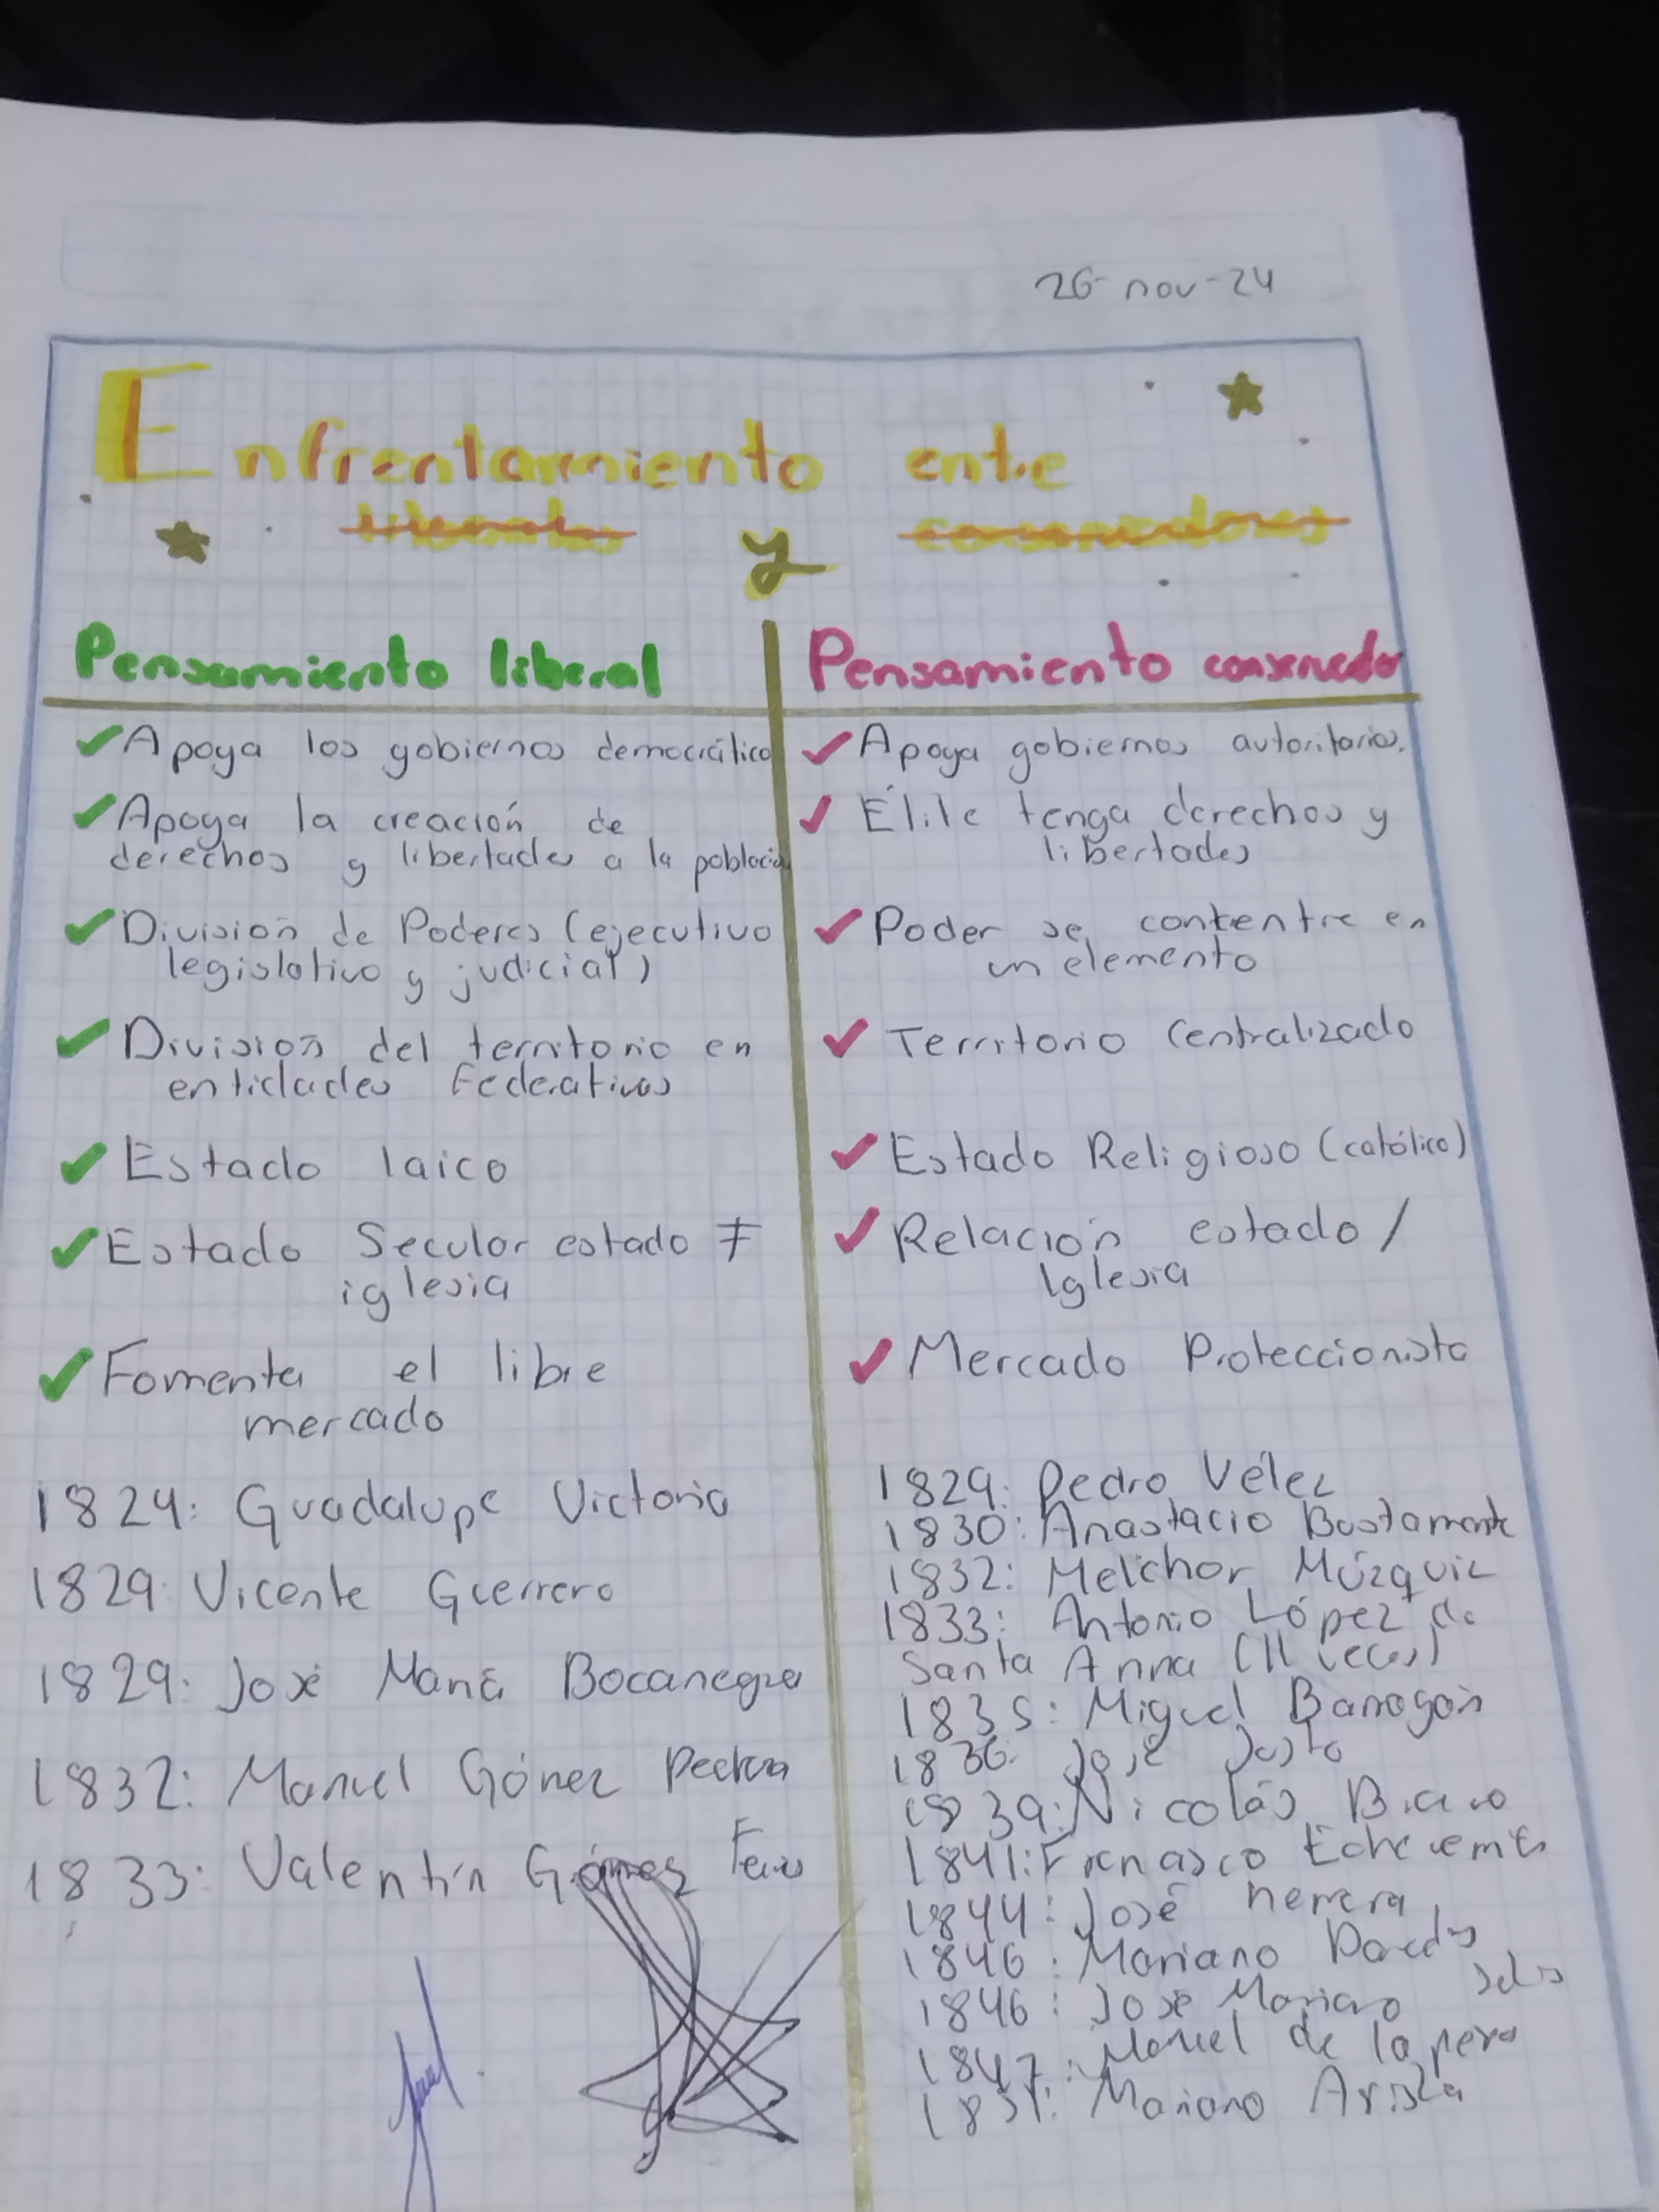 26-nov-24
Enfrentamiento entre
liberales y conservadores
Pensamiento liberal
Apoya los gobiernos democrático
Apoya la creación de
derechos y libertades a la població
División de Poderes (ejecutivo
legislativo y judicial)
División del territorio en
entidades Federativas
Estado laico
Estado Secular estado ≠
iglesia
Fomenta el libre
mercado
1824: Guadalupe Victoria
1829: Vicente Guerrero
1829: José María Bocanegra
1832: Manuel Gómez Pedraza
1833: Valentín Gómez Farías
Pensamiento conservador
Apoya gobiernos autoritarios.
Élite tenga derechos y
libertades
Poder se contentre en
un elemento
Territorio Centralizado
Estado Religioso (católico)
Relación estado /
Iglesia
Mercado Proteccionista
1829: Pedro Vélez
1830: Anastacio Bustamante
1832: Melchor Múzquiz
1833: Antonio López de
Santa Anna (11 veces)
1835: Miguel Barragán
1836: José Justo
1839: Nicolás Bravo
1841: Francisco Echeverría
1844: José Herrera
1846: Mariano Paredes
1846: José Mariano Salas
1847: Manuel de la peña
1851: Mariano Arista